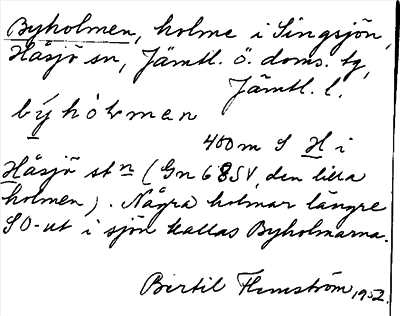 Byholmen, holme i Singsjön,
Håsjö sn, Jämtl. ö. doms. tg,
Jämtl. l.
býhòłmen
400 m S H i
Håsjö stn (Gn 68 SV, den lilla
holmen). Några holmar längre
SO-ut i sjön kallas Byholmarna.
Bertil Flemström, 1952.